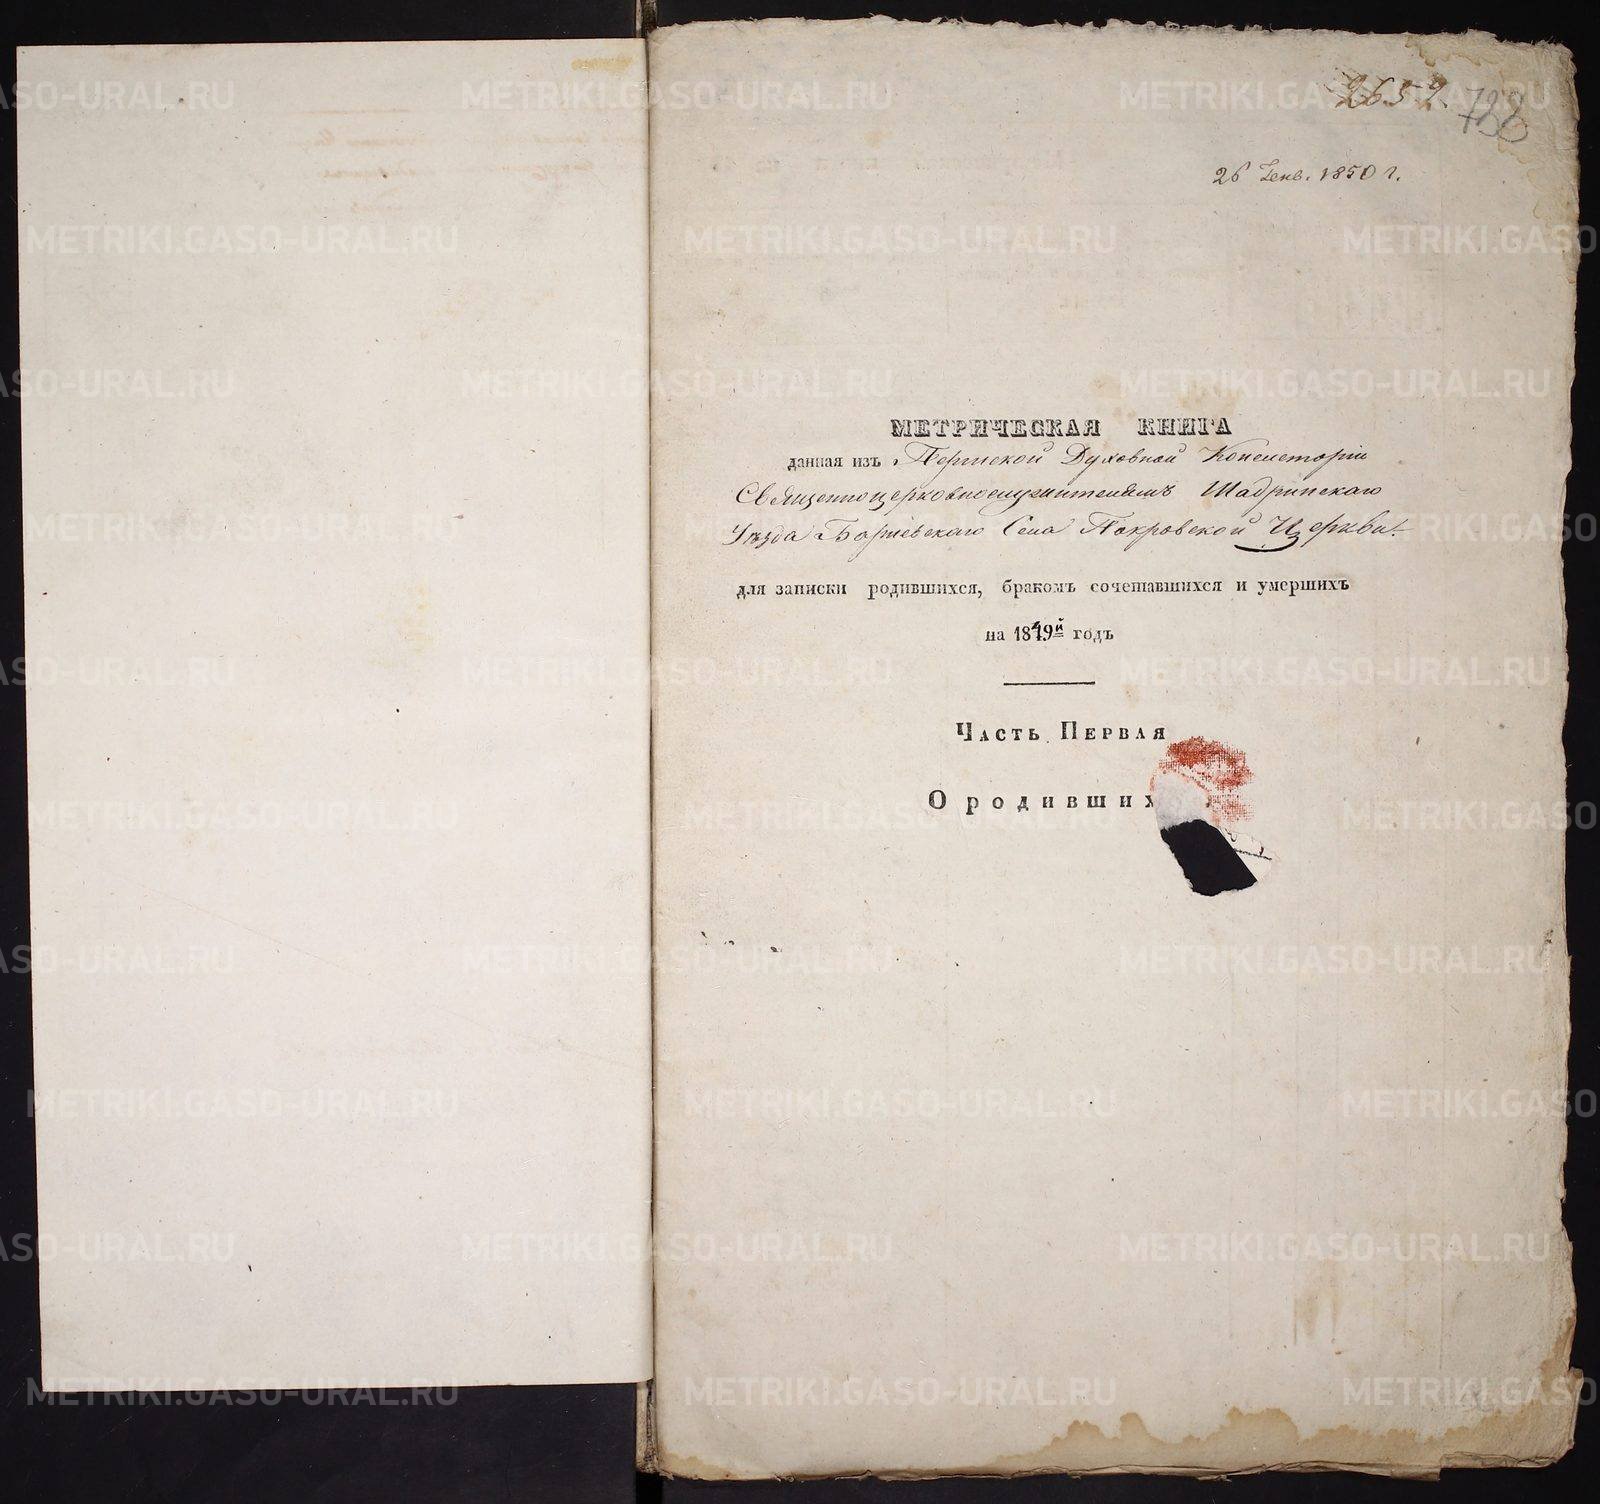 2652.
738
26 Генв. 1850 г.
МЕТРИЧЕСКАЯ КНИГА
данная изъ Пермской Духовной Консисторіи
Священноцерковнослужителямъ Шадринскаго
Уѣзда Барневскаго Села Покровской Церкви.
для записки родившихся, бракомъ сочетавшихся и умершихъ
на 1849й годъ
Часть Первая
О родивших
METRIKI.GASO-URAL.RU